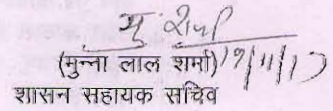 मु. शर्मा
(मुन्ना लाल शर्मा) 19/11/17
शासन सहायक सचिव